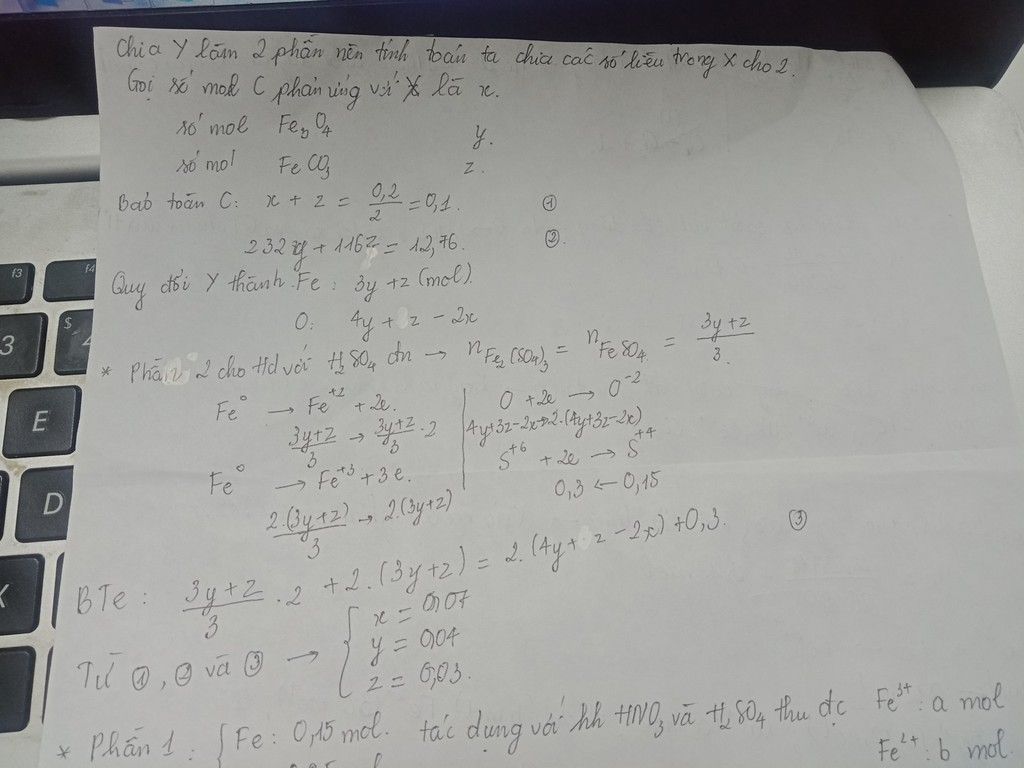 Chia Y làm 2 phần nên tính toán ta chia các số liệu trong X cho 2.
Gọi số mol C phản ứng với X là x.
số mol Fe3O4 y.
số mol FeCO3 z.
Bảo toàn C: x + z = 0,2/2 = 0,1. ①
232y + 116z = 12,76. ②.
Quy đổi Y thành Fe: 3y + z (mol).
O: 4y + z - 2x
* Phần 2 cho td với H2SO4 đn → nFe2(SO4)3 = nFeSO4 = (3y+z)/3.
Fe⁰ → Fe⁺² + 2e.
(3y+z)/3 → (3y+z)/3 . 2
Fe⁰ → Fe⁺³ + 3e.
2.(3y+z)/3 → 2.(3y+z)
O + 2e → O⁻²
4y+3z-2x → 2.(4y+3z-2x)
S⁺⁶ + 2e → S⁺⁴
0,3 ← 0,15
BTe: (3y+z)/3 . 2 + 2.(3y+z) = 2.(4y + z - 2x) + 0,3. ③
Từ ①, ② và ③ → { x = 0,07
y = 0,04
z = 0,03.
* Phần 1: { Fe: 0,15 mol. tác dụng với hh HNO3 và H2SO4 thu đc Fe³⁺: a mol
Fe²⁺: b mol.
f3
f4
3
$
4
E
D